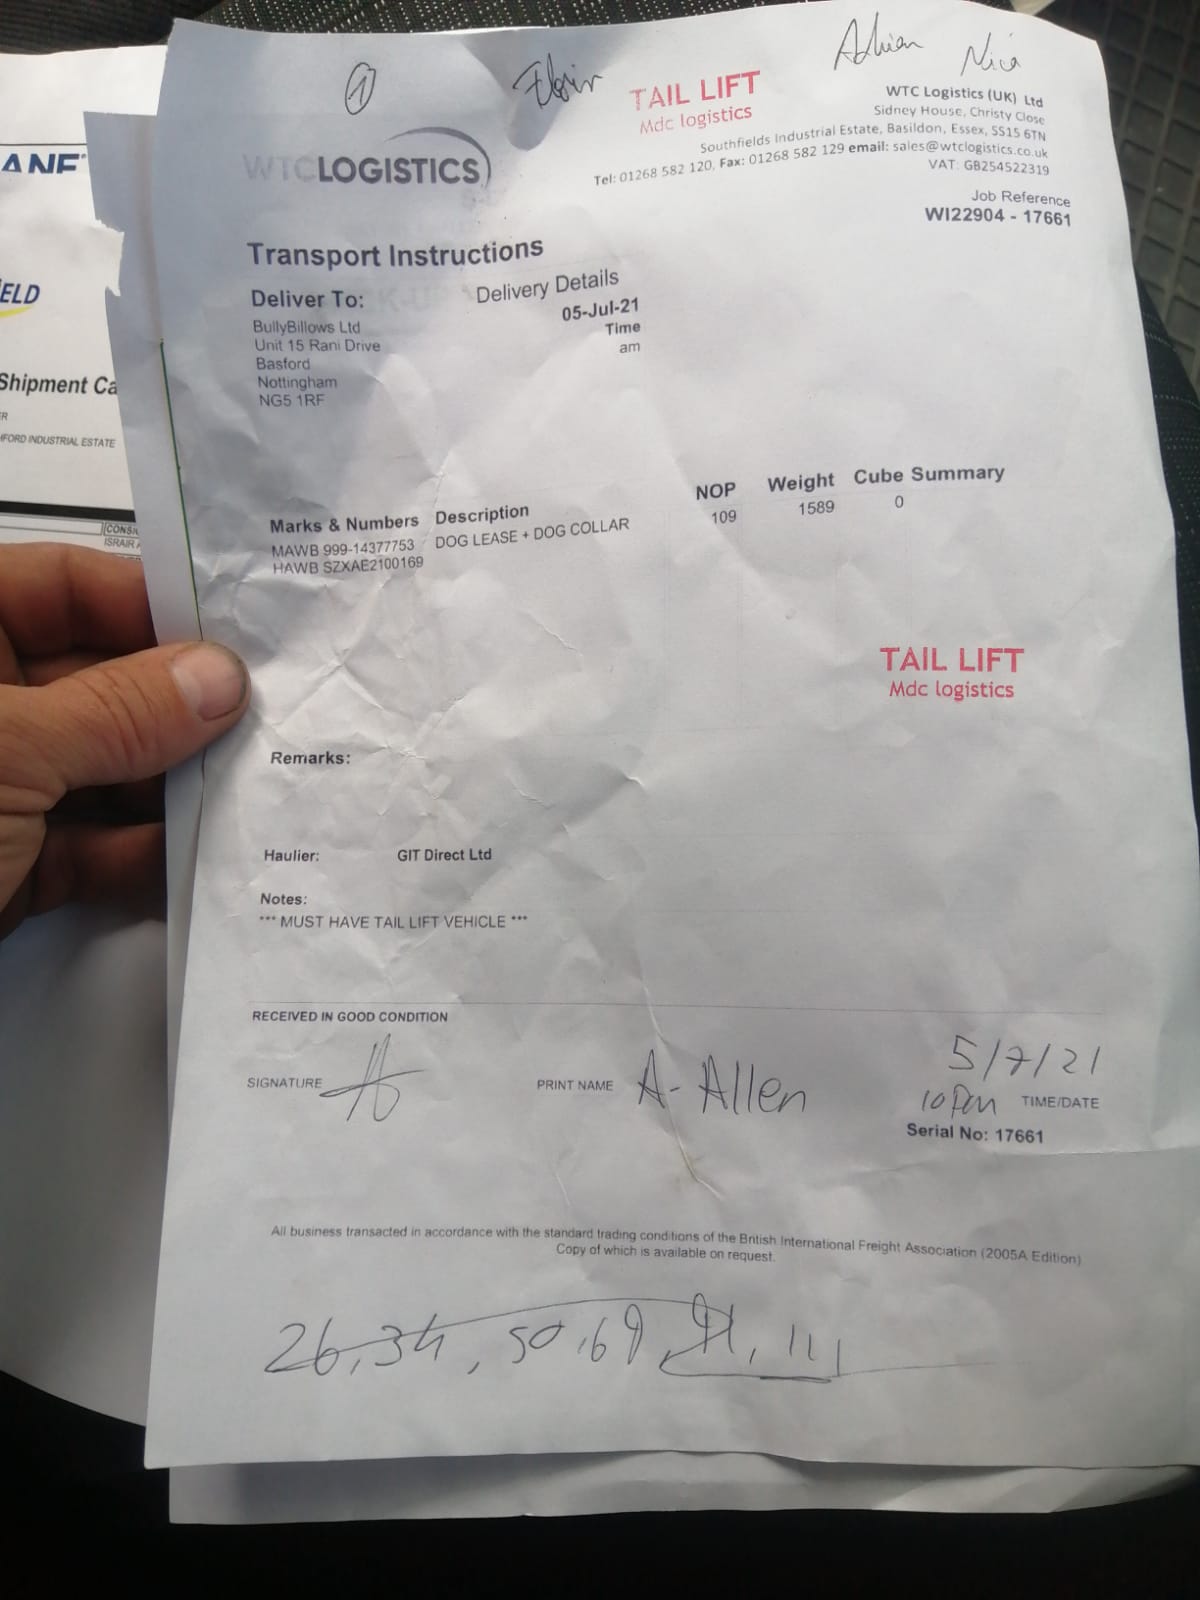 1
Adrian Nica
TAIL LIFT
Mdc logistics
WTC Logistics (UK) Ltd
Sidney House, Christy Close
Southfields Industrial Estate, Basildon, Essex, SS15 6TN
Tel: 01268 582 120, Fax: 01268 582 129 email: sales@wtclogistics.co.uk
VAT: GB254522319
WTCLOGISTICS
Job Reference
WI22904 - 17661
Transport Instructions
Deliver To:
BullyBillows Ltd
Unit 15 Rani Drive
Basford
Nottingham
NG5 1RF
Delivery Details
05-Jul-21
Time
am
Marks & Numbers Description NOP Weight Cube Summary
MAWB 999-14377753 DOG LEASE + DOG COLLAR 109 1589 0
HAWB SZXAE2100169
TAIL LIFT
Mdc logistics
Remarks:
Haulier: GIT Direct Ltd
Notes:
*** MUST HAVE TAIL LIFT VEHICLE ***
RECEIVED IN GOOD CONDITION
SIGNATURE PRINT NAME A-Allen
5/7/21
TIME/DATE
Serial No: 17661
All business transacted in accordance with the standard trading conditions of the British International Freight Association (2005A Edition)
Copy of which is available on request.
26, 34, 50, 69, 91, 111
ELD
Shipment Ca
ER
FORD INDUSTRIAL ESTATE
ISRAIR